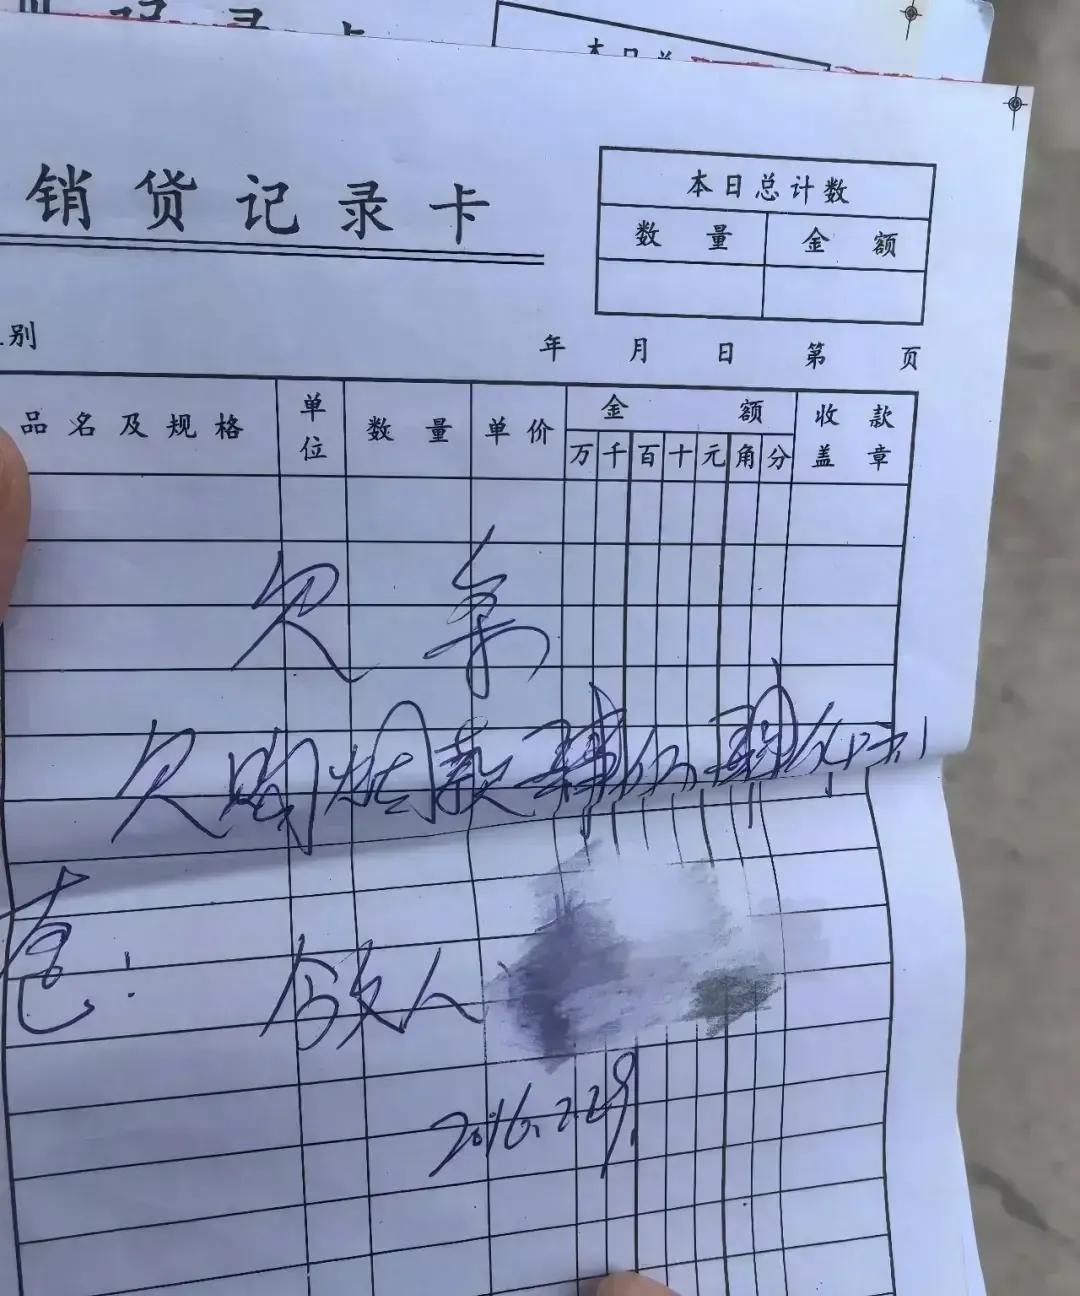 本日总
销贷记录卡
本日总计数
数量 金额
别 年 月 日 第 页
品名及规格 单位 数量 单价 金额 收款盖章
万 千 百 十 元 角 分
欠条
欠购烟款肆仟肆佰
人
2016.2.29